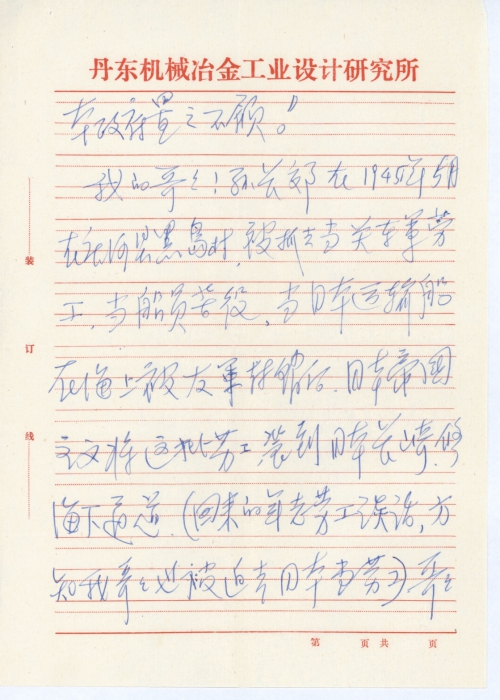 丹东机械冶金工业设计研究所
本政府置之不顾。”
我的哥々!孙长郊在1945年5月
在庄河县黑岛村,被抓去当关东军劳
工,当船员苦役,当日本运输船
在海上被友军打后,日本帝国
主义将这批劳工装到日本长崎,修
海下通道.(回来的年老劳工谈话,方
知我哥々也被迫去日本当劳工)哥々
装
订
线
第 页共 页